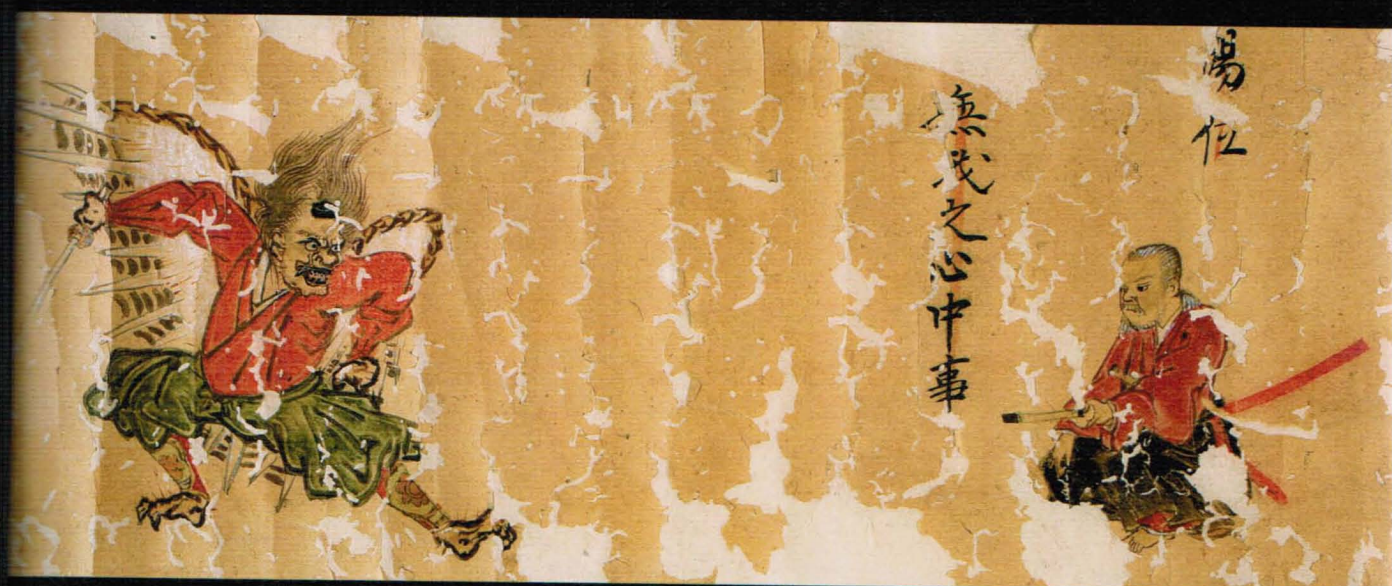 陽位
無我之心中事